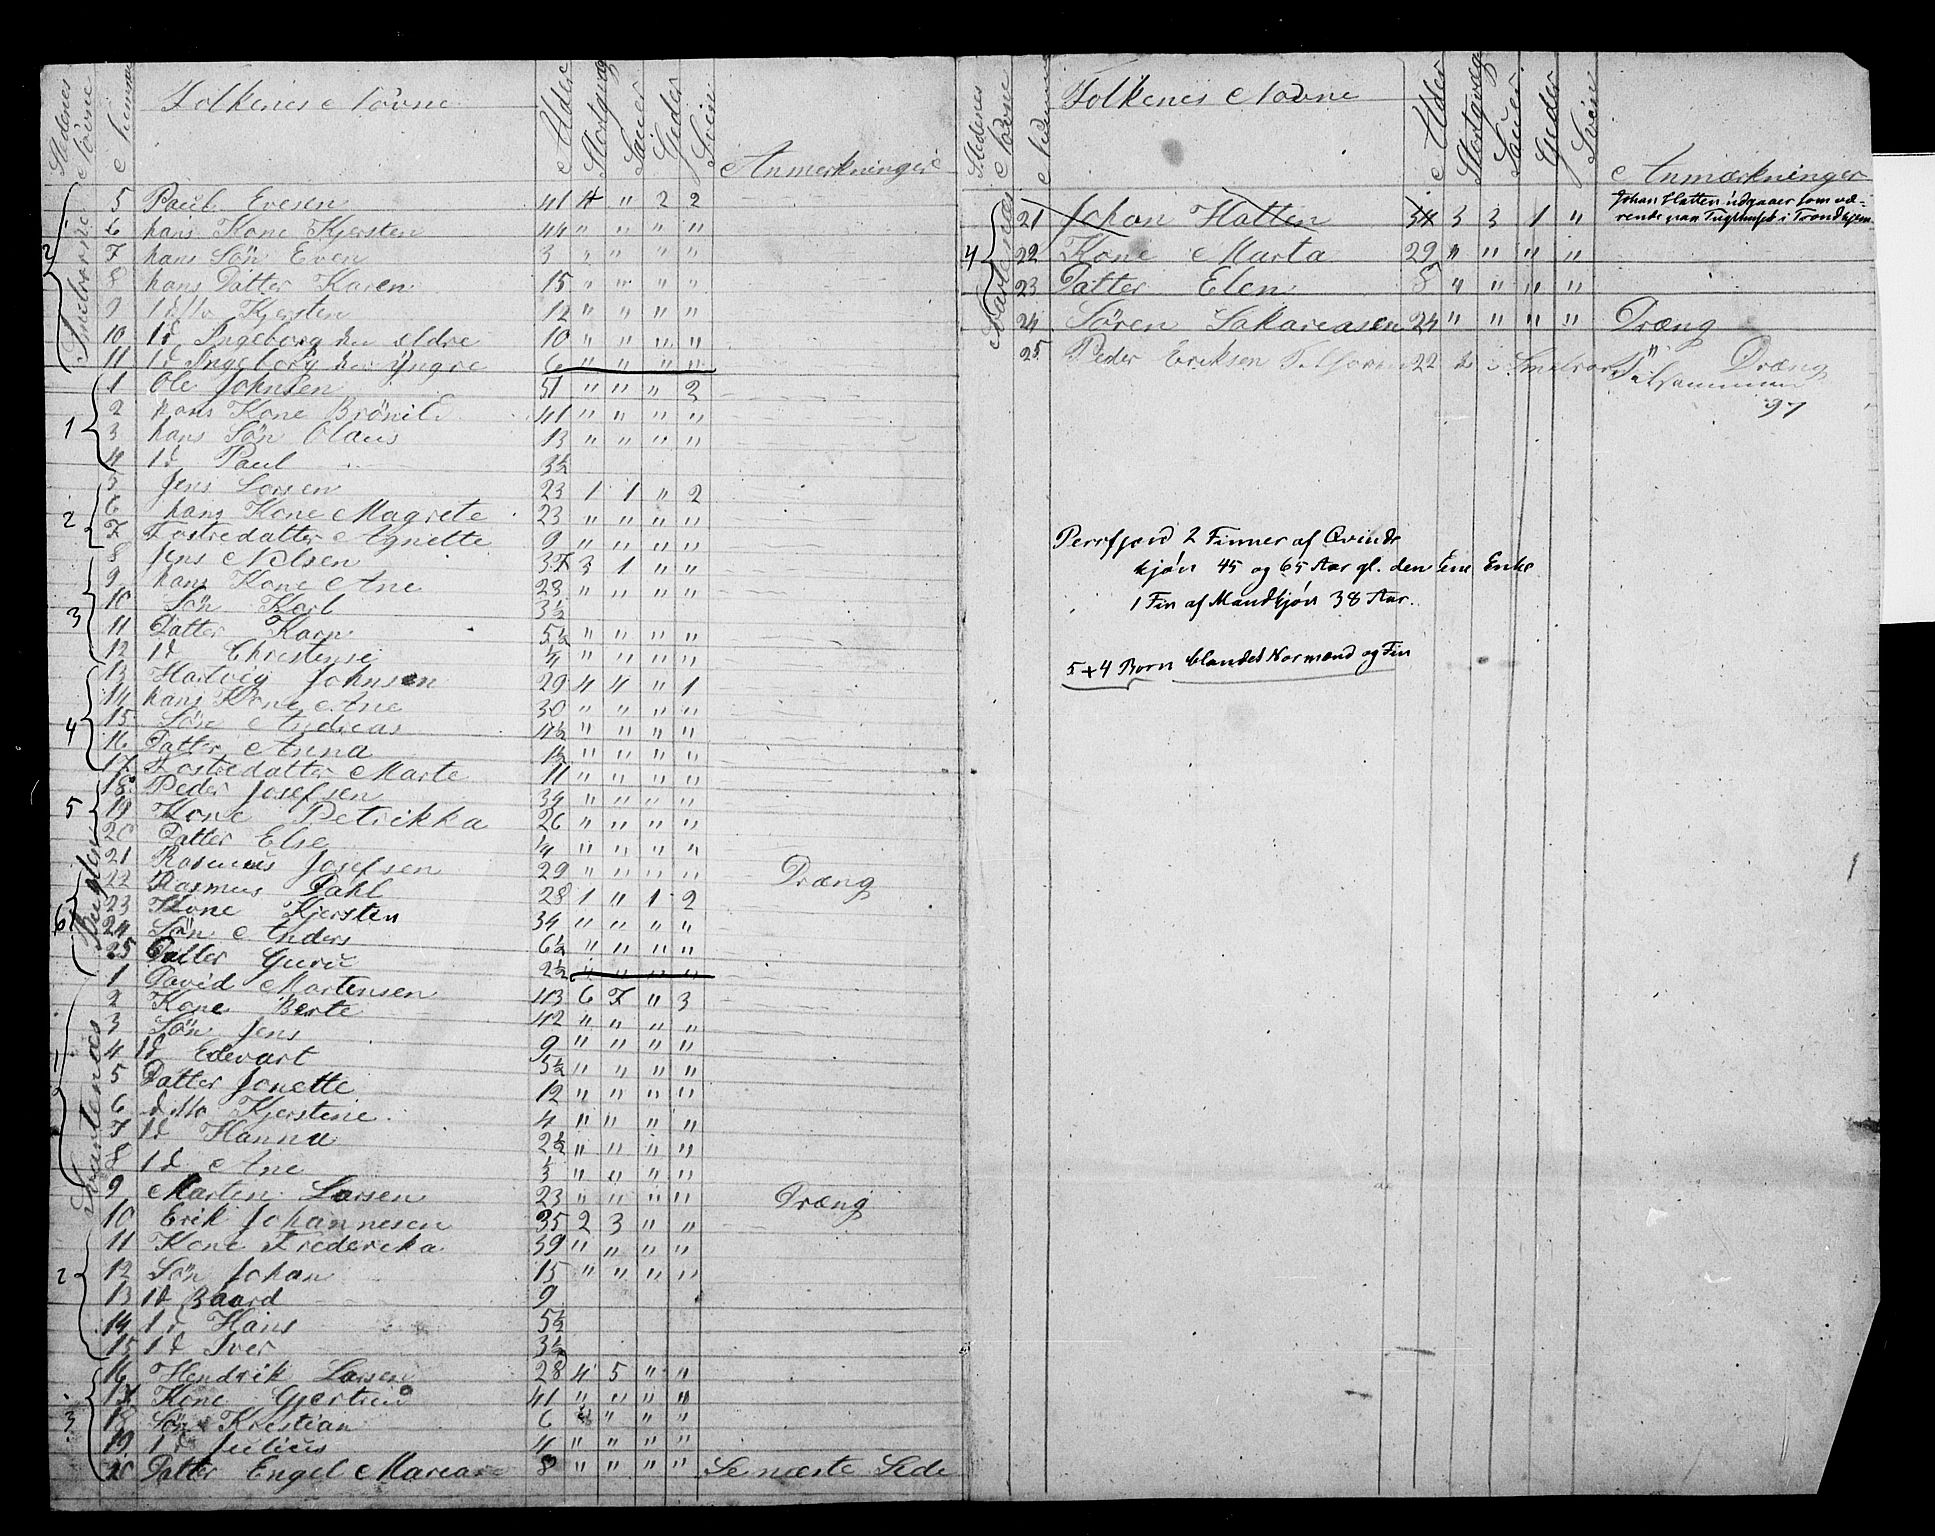 Stedenes Navne | Numer | Folkenes Navne | Alder | Storqvæg | Sauer | Geder | Svin | Anmerkninger
2 Smelvorne
5 Paul Evesen 41 4 " 2 2
6 hans Kone Kjersten 44 " " " "
7 hans Sön Even 3 " " " "
8 hans Datter Karen 15 " " " "
9 ditto Kjersten 12 " " " "
10 id Ingeborg den eldre 10 " " " "
11 id Ingeborg den yngre 6 " " " "
Kuglen
1
1 Ole Johnsen 51 " " " 2
2 hans Kone Brönil 41 " " " "
3 hans Sön Olaus 13 " " " "
4 id Paul 3½
2
5 Jens Larsen 23 1 1 " 2
6 hans Kone Magrete 23 " " " "
7 Fostredatter Agnette 9 " " " "
3
8 Jens Nelsen 37 3 1 " "
9 hans Kone Ane 28 " " " "
10 Sön Karl 3½
11 Datter Karn 5½ " " " "
12 id Christense ¼ " " " "
4
13 Hartvig Johnsen 29 4 4 " 1
14 hans Kone Ane 30 " " " "
15 Söne Andreas 4½ " " " "
16 Datter Anna 1½ " " " "
17 Fostredatter Marte 11 " " " "
5
18 Peder Josefsen 34 " " " "
19 Kone Petrikka 26 " " " "
20 Datter Else ¼ " " " "
21 Rasmus Josefsen 29 " " " " Dræng
6
22 Rasmus Dahl 28 1 " 1 2
23 Kone Kjersten 34 " " " "
24 Sön Anders 6½ " " " "
25 Datter Guru 2½ " " " "
Svartenæs
1
1 David Mortensen 43 6 7 " 3
2 Kone Berte 42 " " " "
3 Sön Jens 9 " " " "
4 id Edevart 5½ " " " "
5 Datter Jonette 12 " " " "
6 ditto Kjerstine 4 " " " "
7 id Hanna 2½ " " " "
8 id Ane " " " "
9 Marten Larsen 23 " " " " Dræng
2
10 Erik Johannesen 35 2 3 " "
11 Kone Frederika 39 " " " "
12 Sön Johan 15 " " " "
13 id Baard 9
14 id Hans 5½
15 id Iver 3½
3
16 Hendrik Larsen 28 4 5 " "
17 Kone Gjertrud 41 " " " "
18 Sön Kristian 6 " " "
19 id Julius 4 " " " "
20 Datter Engel Mareane 8 " " " " Se næste Side
Stedenes Navne | Numer | Folkenes Navne | Alder | Storqvæg | Sauer | Geder | Svin | Anmærkninger
4 Svartenæs
21 Johan Hatten 34 3 3 1 " Johan Hatten udgaaer som væ-
rende paa Tugthuset i Trondhjem.
22 Kone Marta 29 " " " "
23 Datter Elen 8 " " " "
24 Sören Sakareasen 24 " " " " Dræng
25 Peder Eriksen 22 " Dræng
Tilsammen
97
Perrfjord 2 Finner af Qvinde
kjön 45 og 65 Aar gl. den Ene Enke
1 Fin af Mandkjön 38 Aar.
5+4 Born blandet Normænd og Fin